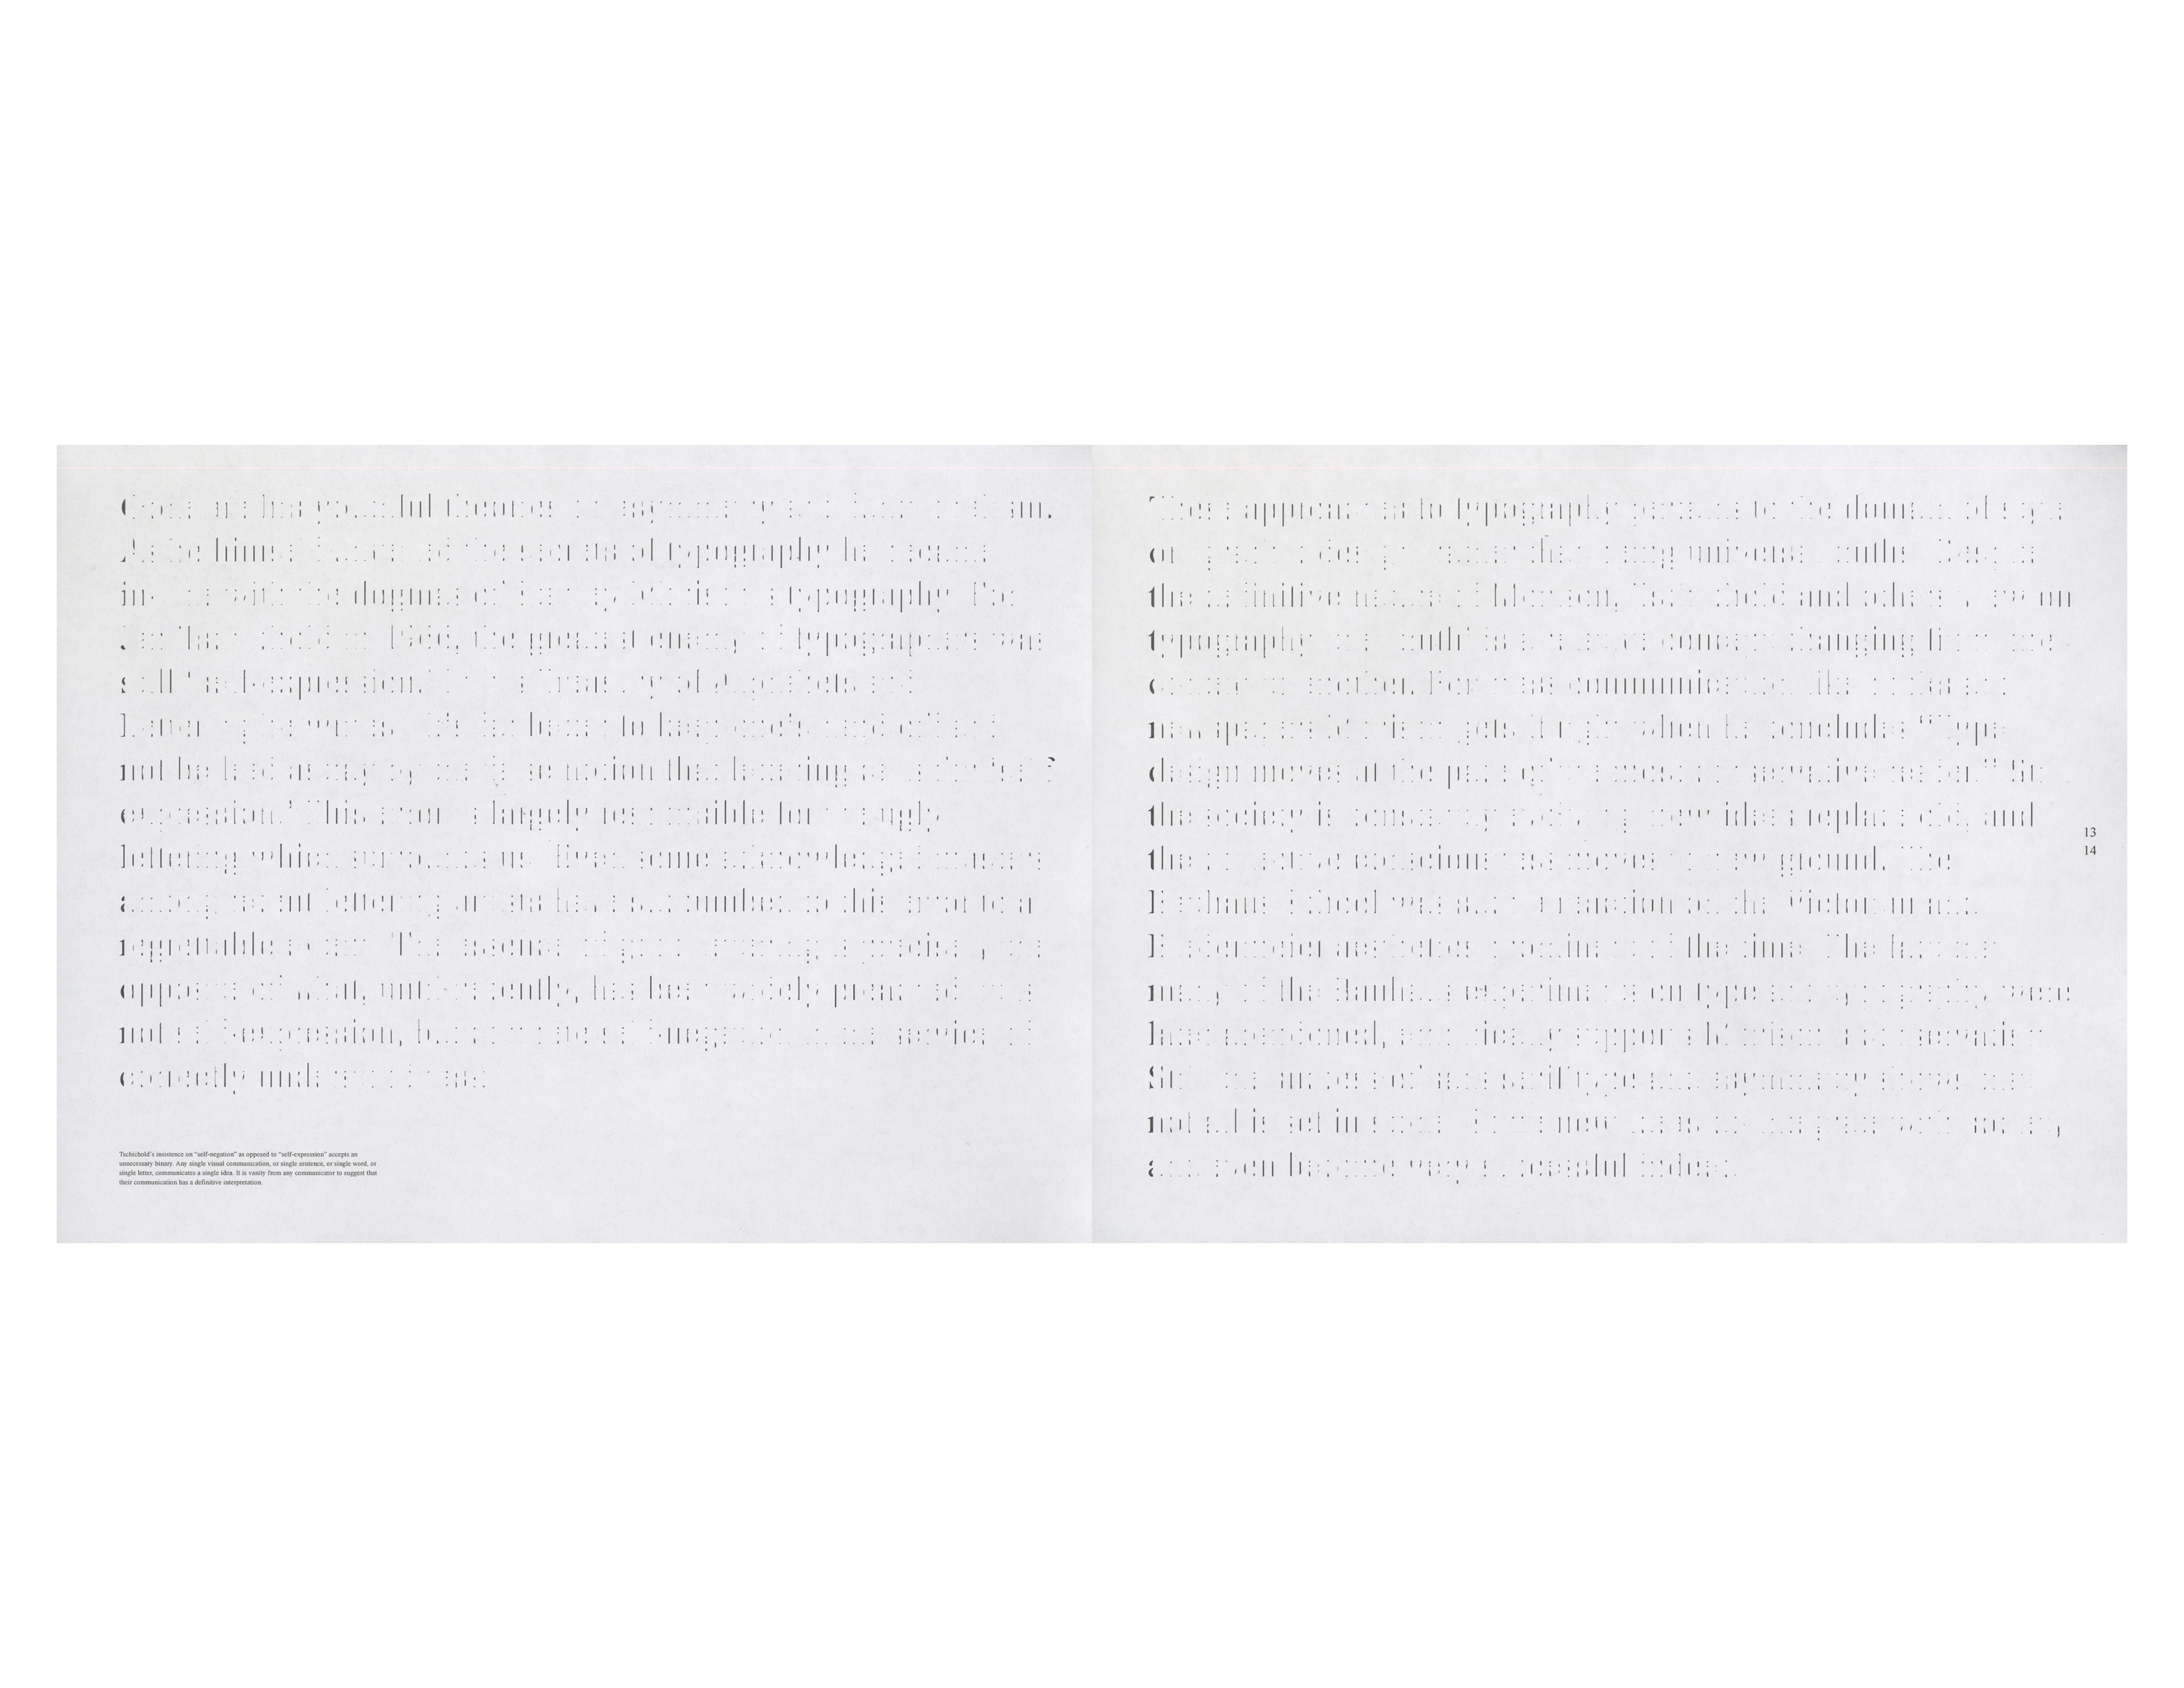 Gone are his youthful theories on asymmetry and functionalism.
As he himself the secrets of typography he became
in line with the dogmas of Stanley Morison's typography. For
Jan Tschichold in 1966, the greatest enemy of typographers was
still "self-expression." From a Treasury of Alphabets and
Lettering he writes: it's far better to keep one's hand off and
not be lead astray by the false notion that lettering calls for "self
expression." This error is largely responsible for the ugly
lettering which surrounds us. Even some acknowledged masters
among recent lettering artists have succumbed to this error to a
regrettable extent. The essence of good lettering is precisely the
opposite of what, until recently, has been widely preached. It is
not self-expression, but complete self-negation in the service of
correctly understood task.
Tschichold's insistence on "self-negation" as opposed to "self-expression" accepts an
unnecessary binary. Any single visual communication, or single sentence, or single word, or
single letter, communicates a single idea. It is vanity from any communicator to suggest that
their communication has a definitive interpretation.
These approaches to typography pertains to the domain of style
or graphic design rather than being universal truths. Despite
the definitive nature of Morison, Tschichold and others view on
typography the 'truth' is a relative concept changing from one
context to another. For mass communication like books and
newspapers Morison gets it right when he concludes "Type
design moves at the pace of the most conservative reader." Still
the society is constantly evolving, new ideas replace old, and
the collective consciousness moves to new ground. The
Bauhaus School was such a reaction on the Victorian and
Biedermeier aesthetics prominent of the time. The fact that
many of the Bauhaus experiments on type and typography were
later abandoned, and really supports Morison's conservatism.
Still the success of sans serif type and asymmetry shows that
not all is set in stone. Some new ideas do integrate with society,
and even become very successful indeed.
13
14